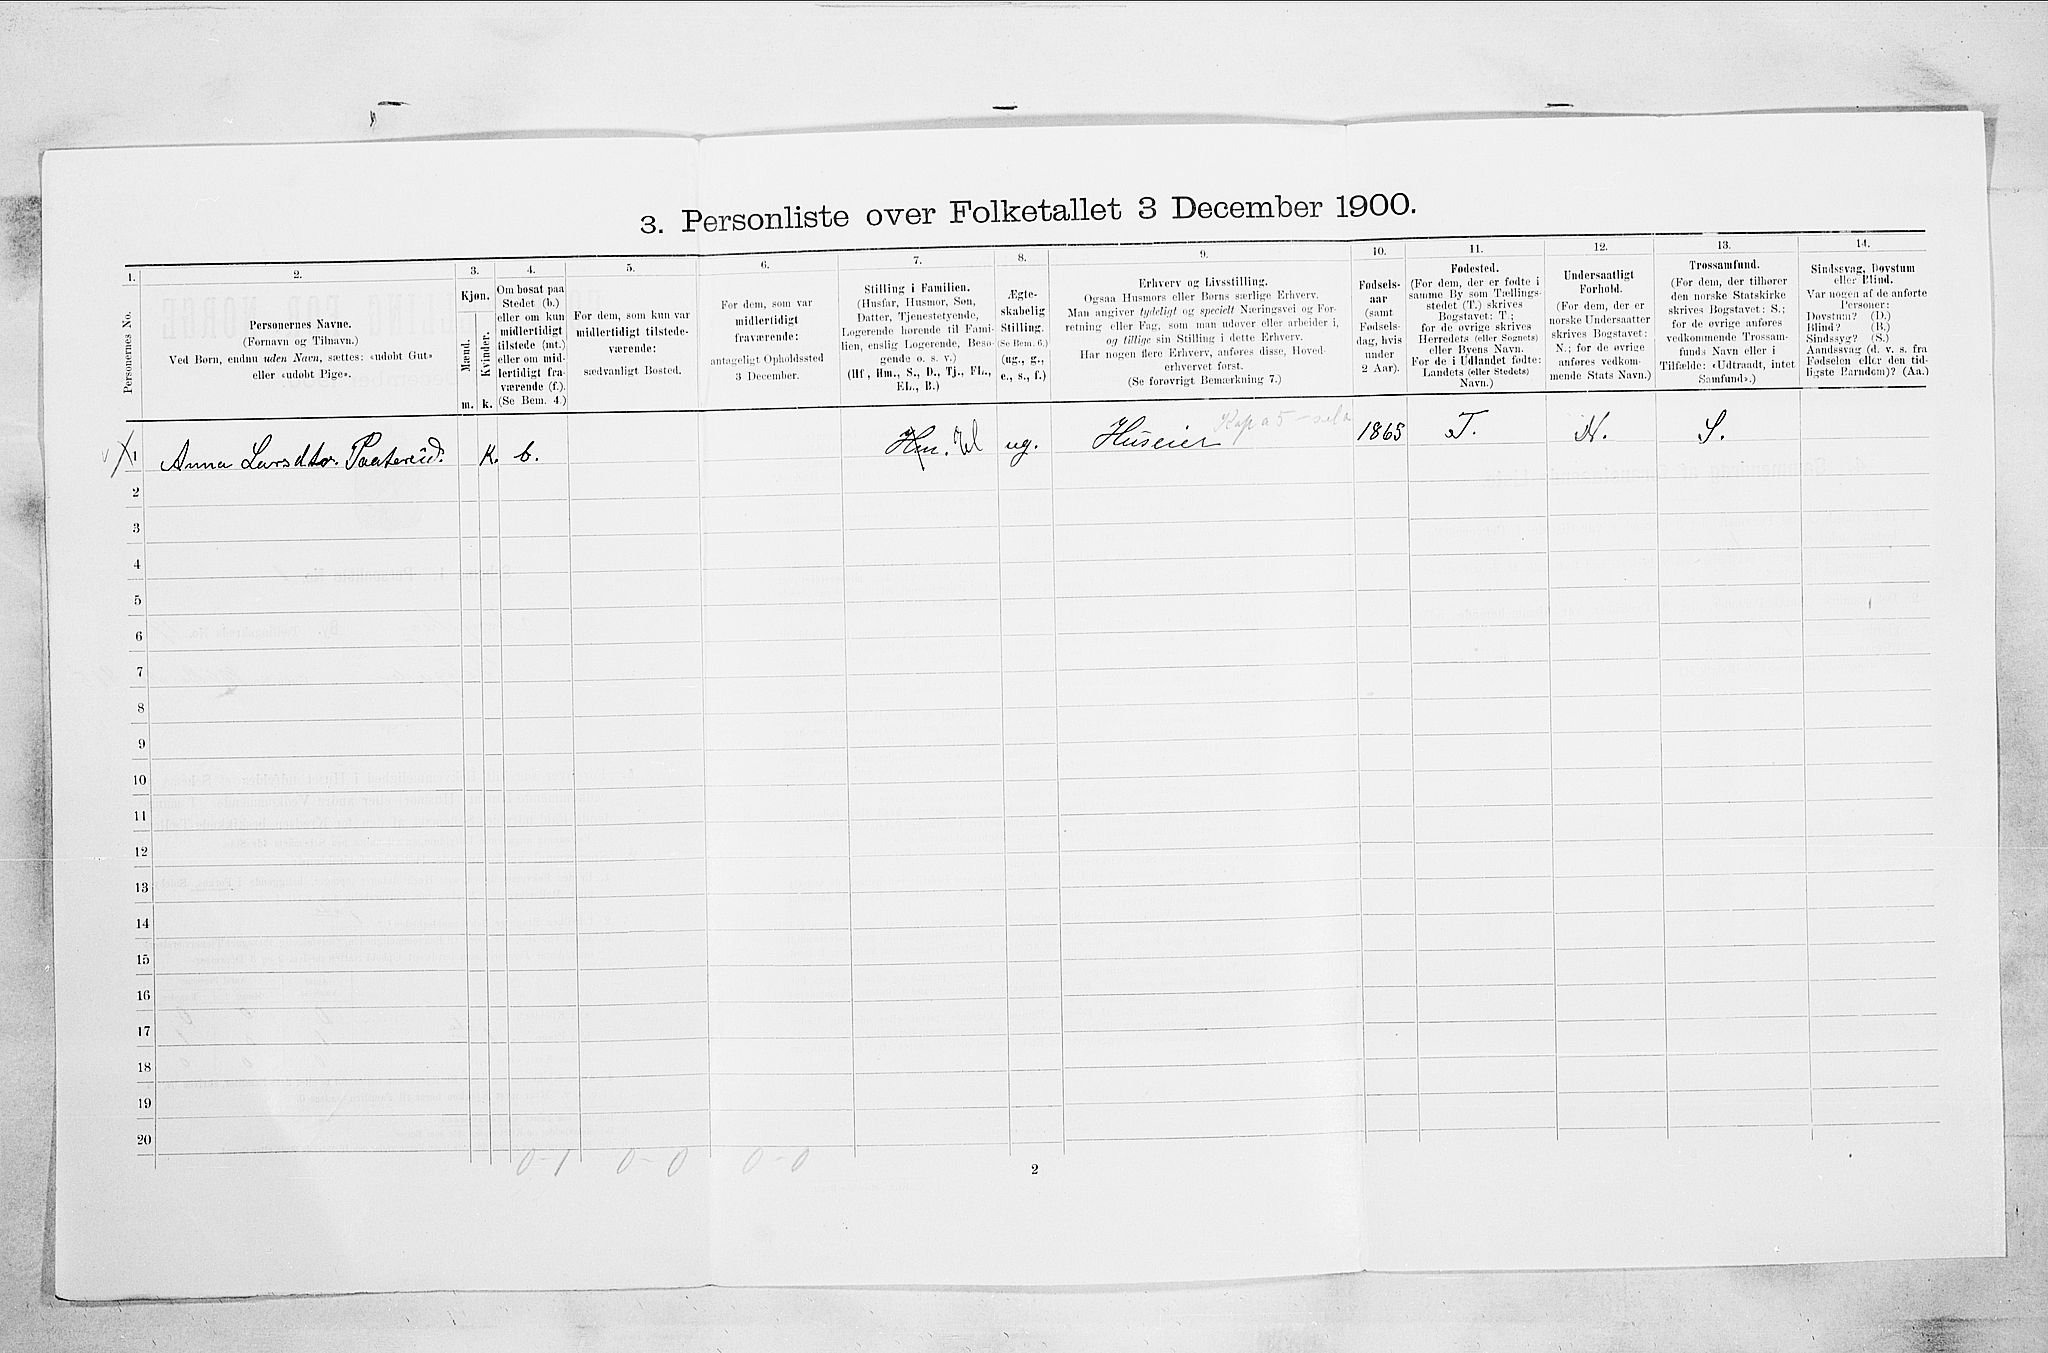 3. Personliste over Folketallet 3 December 1900.
1.
Personernes No.
2.
Personernes Navne.
(Fornavn og Tilnavn.)
Ved Børn, endnu uden Navn, sættes: «udøbt Gut»
eller «udøbt Pige».
3.
Kjøn.
Mænd.
Kvinder.
m.
k.
4.
Om bosat paa
Stedet (b.)
eller om kun
midlertidigt
tilstede (mt.)
eller om mid-
lertidigt fra-
værende (f.).
(Se Bem. 4.)
5.
For dem, som kun var
midlertidigt tilstede-
værende:
sædvanligt Bosted.
6.
For dem, som var
midlertidigt
fraværende:
antageligt Opholdssted
3 December.
7.
Stilling i Familien.
(Husfar, Husmor, Søn,
Datter, Tjenestetyende,
Logerende hørende til Fami-
lien, enslig Logerende, Besø-
gende o. s. v.)
(Hf., Hm., S., D., Tj., FL.,
EL., B.)
8.
Ægte-
skabelig
Stilling.
(Se Bem. 6.)
(ug., g.,
e., s., f.)
9.
Erhverv og Livsstilling.
Ogsaa Husmors eller Børns særlige Erhverv.
Man angiver tydeligt og specielt Næringsvei og For-
retning eller Fag, som man udøver eller arbeider i,
og tillige sin Stilling i dette Erhverv.
Har nogen flere Erhverv, anføres disse, Hoved-
erhvervet først.
(Se forøvrigt Bemærkning 7.)
10.
Fødsels-
aar
(samt
Fødsels-
dag, hvis
under
2 Aar).
11.
Fødested.
(For dem, der er fødte i
samme By som Tællings-
stedet (T.) skrives
Bogstavet: T.;
for de øvrige skrives
Herredets (eller Sognets)
eller Byens Navn.
For de i Udlandet fødte:
Landets (eller Stedets)
Navn.)
12.
Undersaatligt
Forhold.
(For dem, der er
norske Undersaatter
skrives Bogstavet:
N.; for de øvrige
anføres vedkom-
mende Stats Navn.)
13.
Trossamfund.
(For dem, der tilhører
den norske Statskirke
skrives Bogstavet: S.;
for de øvrige anføres
vedkommende Trossam-
funds Navn eller i
Tilfælde: «Udtraadt, intet
Samfund».)
14.
Sindssvag, Døvstum
eller Blind.
Var nogen af de anførte
Personer:
Døvstum? (D.)
Blind? (B.)
Sindssyg? (S.)
Aandssvag (d. v. s. fra
Fødselen eller den tid-
ligste Barndom)? (Aa.)
1 Anna Larsdtr. Paatereid. K. b. Hm. El ug. Huseier 1865 T. N. S.
2
3
4
5
6
7
8
9
10
11
12
13
14
15
16
17
18
19
20
0-1 0-0 0-0
2